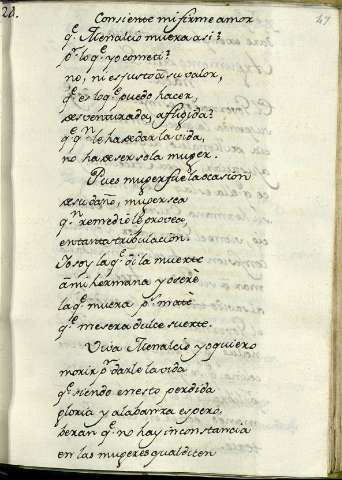 28.
47
Consiente mi firme amor
q.e Menalcio muera asi?
p.r lo q.e yo cometi?
no, ni es justo à su valor,
q.e es lo q.e puedo hacer,
desventurada, afligida?
q.e q.n le ha de dar la vida,
no ha de ser sola muger.
Pues muger fue la ocasion
de su daño, muger sea
q.n remedio le provea,
en tanta tribulacion.
Yo soy la q.e di la muerte
à mi hermana y o serè
la q.e muera p.s matè
q.e me sera dulce suerte.
Viva Menalcio y o quiero
morir p.r darle la vida
q.e siendo en esto perdida
gloria y alabanza espero,
veran q.e no hay inconstancia
en las mugeres qual dicen